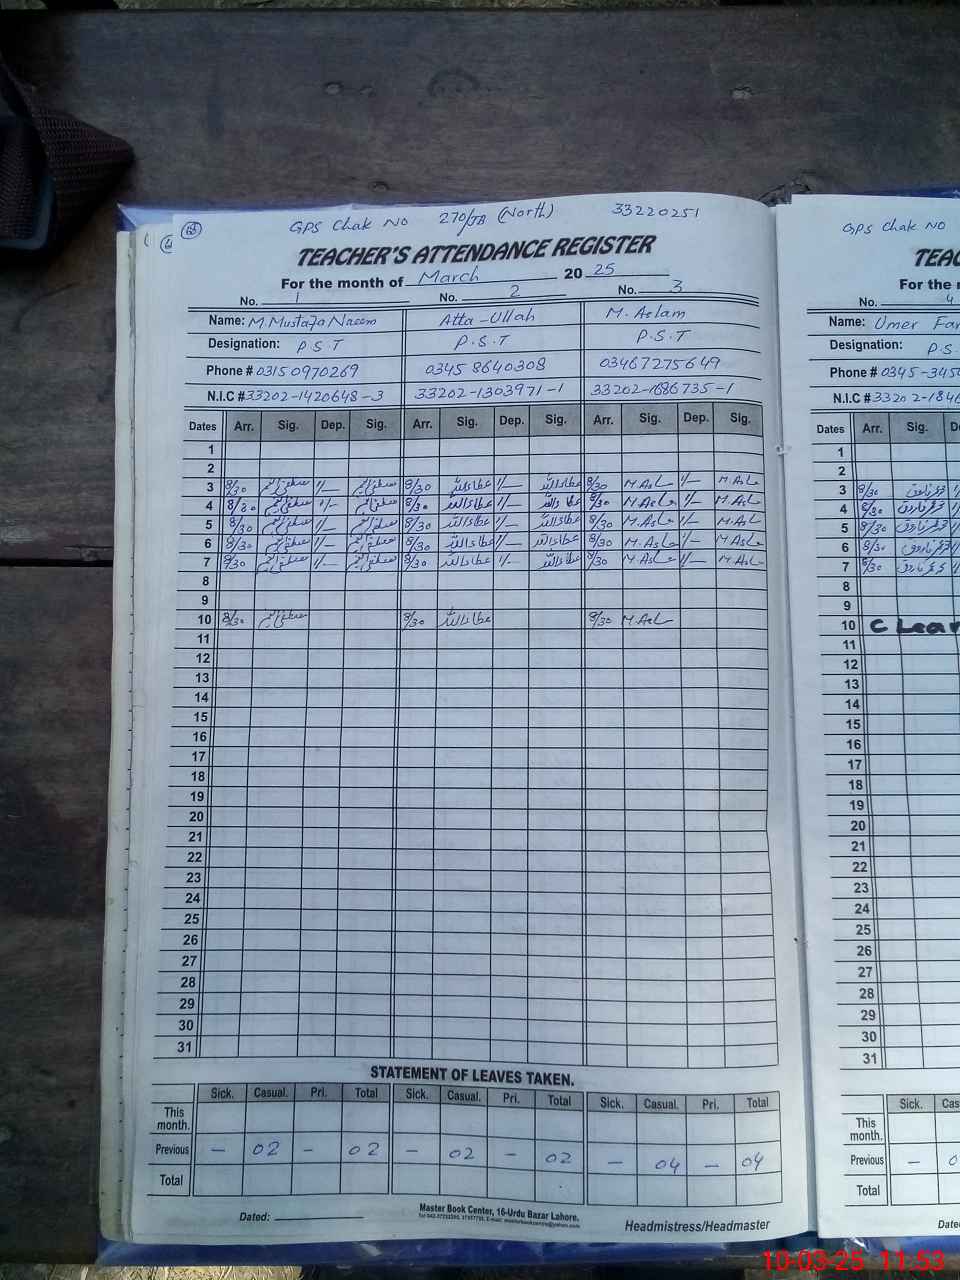 GPS Chak No 270/JB (North) 33220251
TEACHER'S ATTENDANCE REGISTER
For the month of March 20 25
No. 1 No. 2 No. 3
Name: M. Mustafa Naeem Atta-Ullah M. Aslam
Designation: P.S.T P.S.T P.S.T
Phone # 03150970269 0345 8640308 03467275649
N.I.C # 33202-1420648-3 33202-1303971-1 33202-1686735-1
Dates Arr. Sig. Dep. Sig. Arr. Sig. Dep. Sig. Arr. Sig. Dep. Sig.
1
2
3 8/30 1/- 8/30 عطاءاللہ 1/- عطاءاللہ 8/30 1/-
4 8/30 1/- 8/30 عطاءاللہ 1/- عطاءاللہ 8/30 1/-
5 8/30 1/- 8/30 عطاءاللہ 1/- عطاءاللہ 8/30 1/-
6 8/30 1/- 8/30 عطاءاللہ 1/- عطاءاللہ 8/30 1/-
7 8/30 1/- 8/30 عطاءاللہ 1/- عطاءاللہ 8/30 1/-
8
9
10 8/30 8/30 عطاءاللہ 8/30
11
12
13
14
15
16
17
18
19
20
21
22
23
24
25
26
27
28
29
30
31
STATEMENT OF LEAVES TAKEN.
Sick. Casual. Pri. Total Sick. Casual. Pri. Total Sick. Casual. Pri. Total
This month.
Previous - 02 - 02 - 02 - 02 - 04 - 04
Total
Dated:
Master Book Center, 16-Urdu Bazar Lahore.
Headmistress/Headmaster
GPS Chak No
For the
No. 4
Name: Umer
Designation: P.S.
Phone # 0345-345
N.I.C # 33202-184
Dates Arr. Sig.
1
2
3 8/30
4 8/30
5 8/30
6 8/30
7 8/30
8
9
10
11
12
13
14
15
16
17
18
19
20
21
22
23
24
25
26
27
28
29
30
31
Sick.
This month.
Previous -
Total
10-03-25 11:53